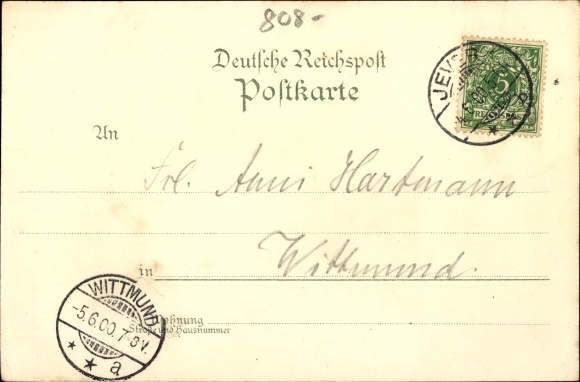 808-
Deutsche Reichspost
Postkarte
JEVER
5
REICHSPOST
An
Frl. Anni Hartmann
in Wittmund.
WITTMUND
-5.6.00.7-8V.
* * a
Wohnung
Straße und Hausnummer